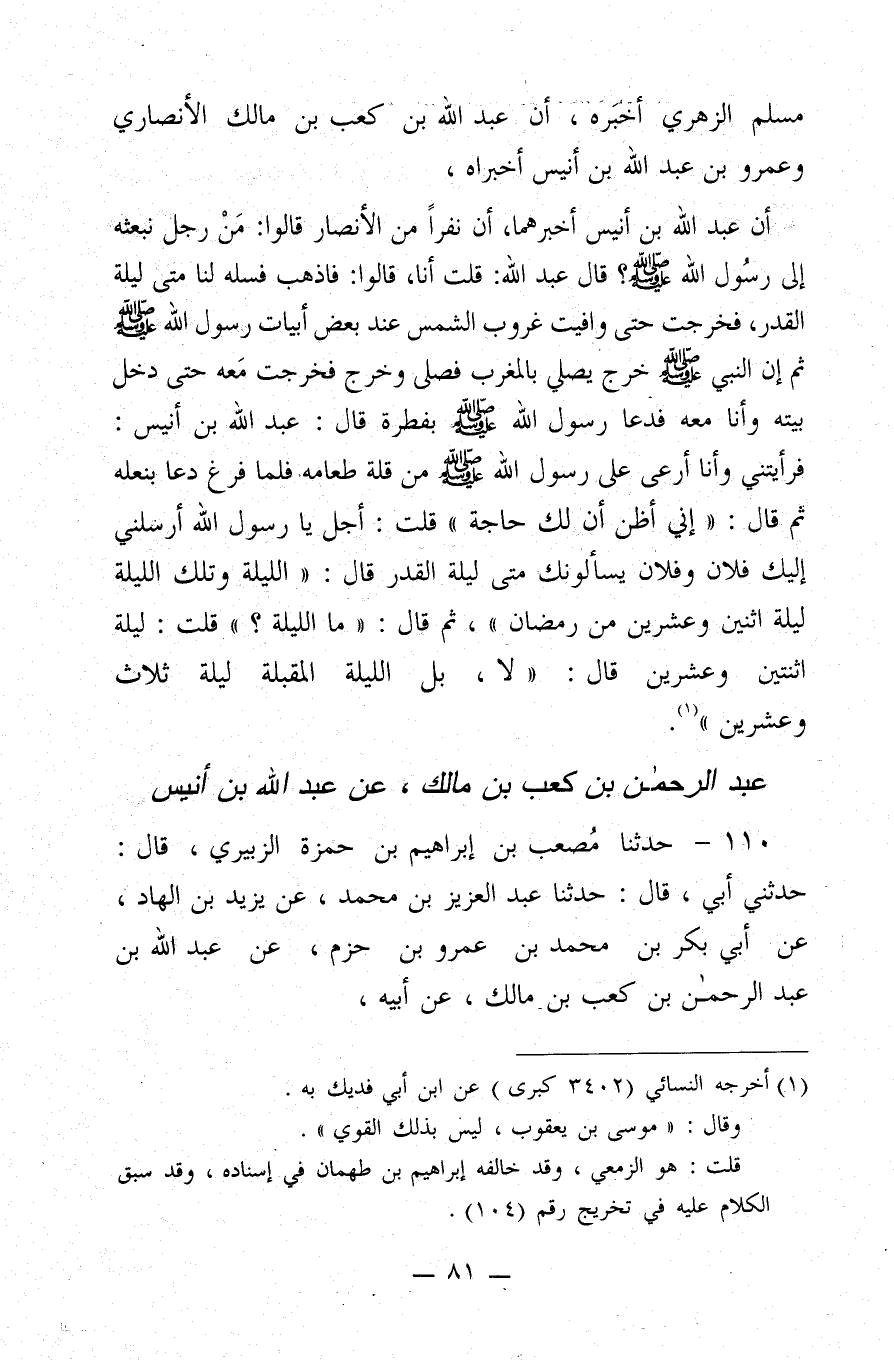 مسلم الزهري أخبَرَه ، أن عبد الله بن كعب بن مالك الأنصاري
وعمرو بن عبد الله بن أنيس أخبراه ،
أن عبد الله بن أنيس أخبرهما، أن نفراً من الأنصار قالوا: مَنْ رجل نبعثه
إلى رسُول الله ﷺ؟ قال عبد الله: قلت أنا، قالوا: فاذهب فسله لنا متى ليلة
القدر، فخرجت حتى وافيت غروب الشمس عند بعض أبيات رسول الله ﷺ
ثم إن النبي ﷺ خرج يصلي بالمغرب فصلى وخرج فخرجت مَعه حتى دخل
بيته وأنا معه فدعا رسول الله ﷺ بفطرة قال : عبد الله بن أنيس :
فرأيتني وأنا أرعى على رسول الله ﷺ من قلة طعامه فلما فرغ دعا بنعله
ثم قال : « إني أظن أن لك حاجة » قلت : أجل يا رسول الله أرسلني
إليك فلان وفلان يسألونك متى ليلة القدر قال : « الليلة وتلك الليلة
ليلة اثنين وعشرين من رمضان » ، ثم قال : « ما الليلة ؟ » قلت : ليلة
اثنتين وعشرين قال : « لا ، بل الليلة المقبلة ليلة ثلاث
وعشرين »(١).
عبد الرحمٰن بن كعب بن مالك ، عن عبد الله بن أنيس
١١٠ – حدثنا مُصعب بن إبراهيم بن حمزة الزبيري ، قال :
حدثني أبي ، قال : حدثنا عبد العزيز بن محمد ، عن يزيد بن الهاد ،
عن أبي بكر بن محمد بن عمرو بن حزم ، عن عبد الله بن
عبد الرحمٰن بن كعب بن مالك ، عن أبيه ،
(١) أخرجه النسائي (٣٤٠٢ كبرى ) عن ابن أبي فديك به .
وقال : « موسى بن يعقوب ، ليس بذلك القوي » .
قلت : هو الزمعي ، وقد خالفه إبراهيم بن طهمان في إسناده ، وقد سبق
الكلام عليه في تخريج رقم (١٠٤) .
— ٨١ —